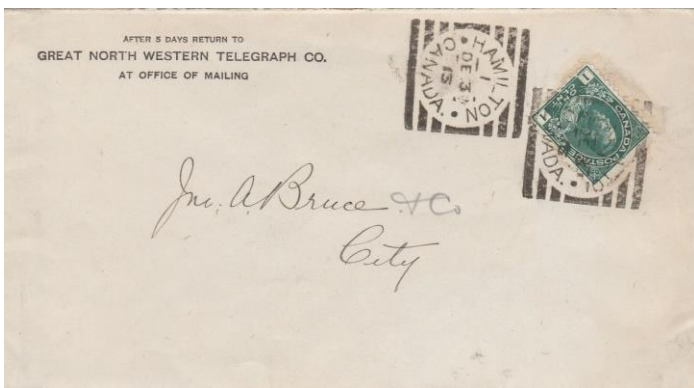 AFTER 5 DAYS RETURN TO
GREAT NORTH WESTERN TELEGRAPH CO.
AT OFFICE OF MAILING
HAMILTON
1
DE 3
13
CANADA.
1 CANADA POSTAGE 1
Jno. A. Bruce & Co
City